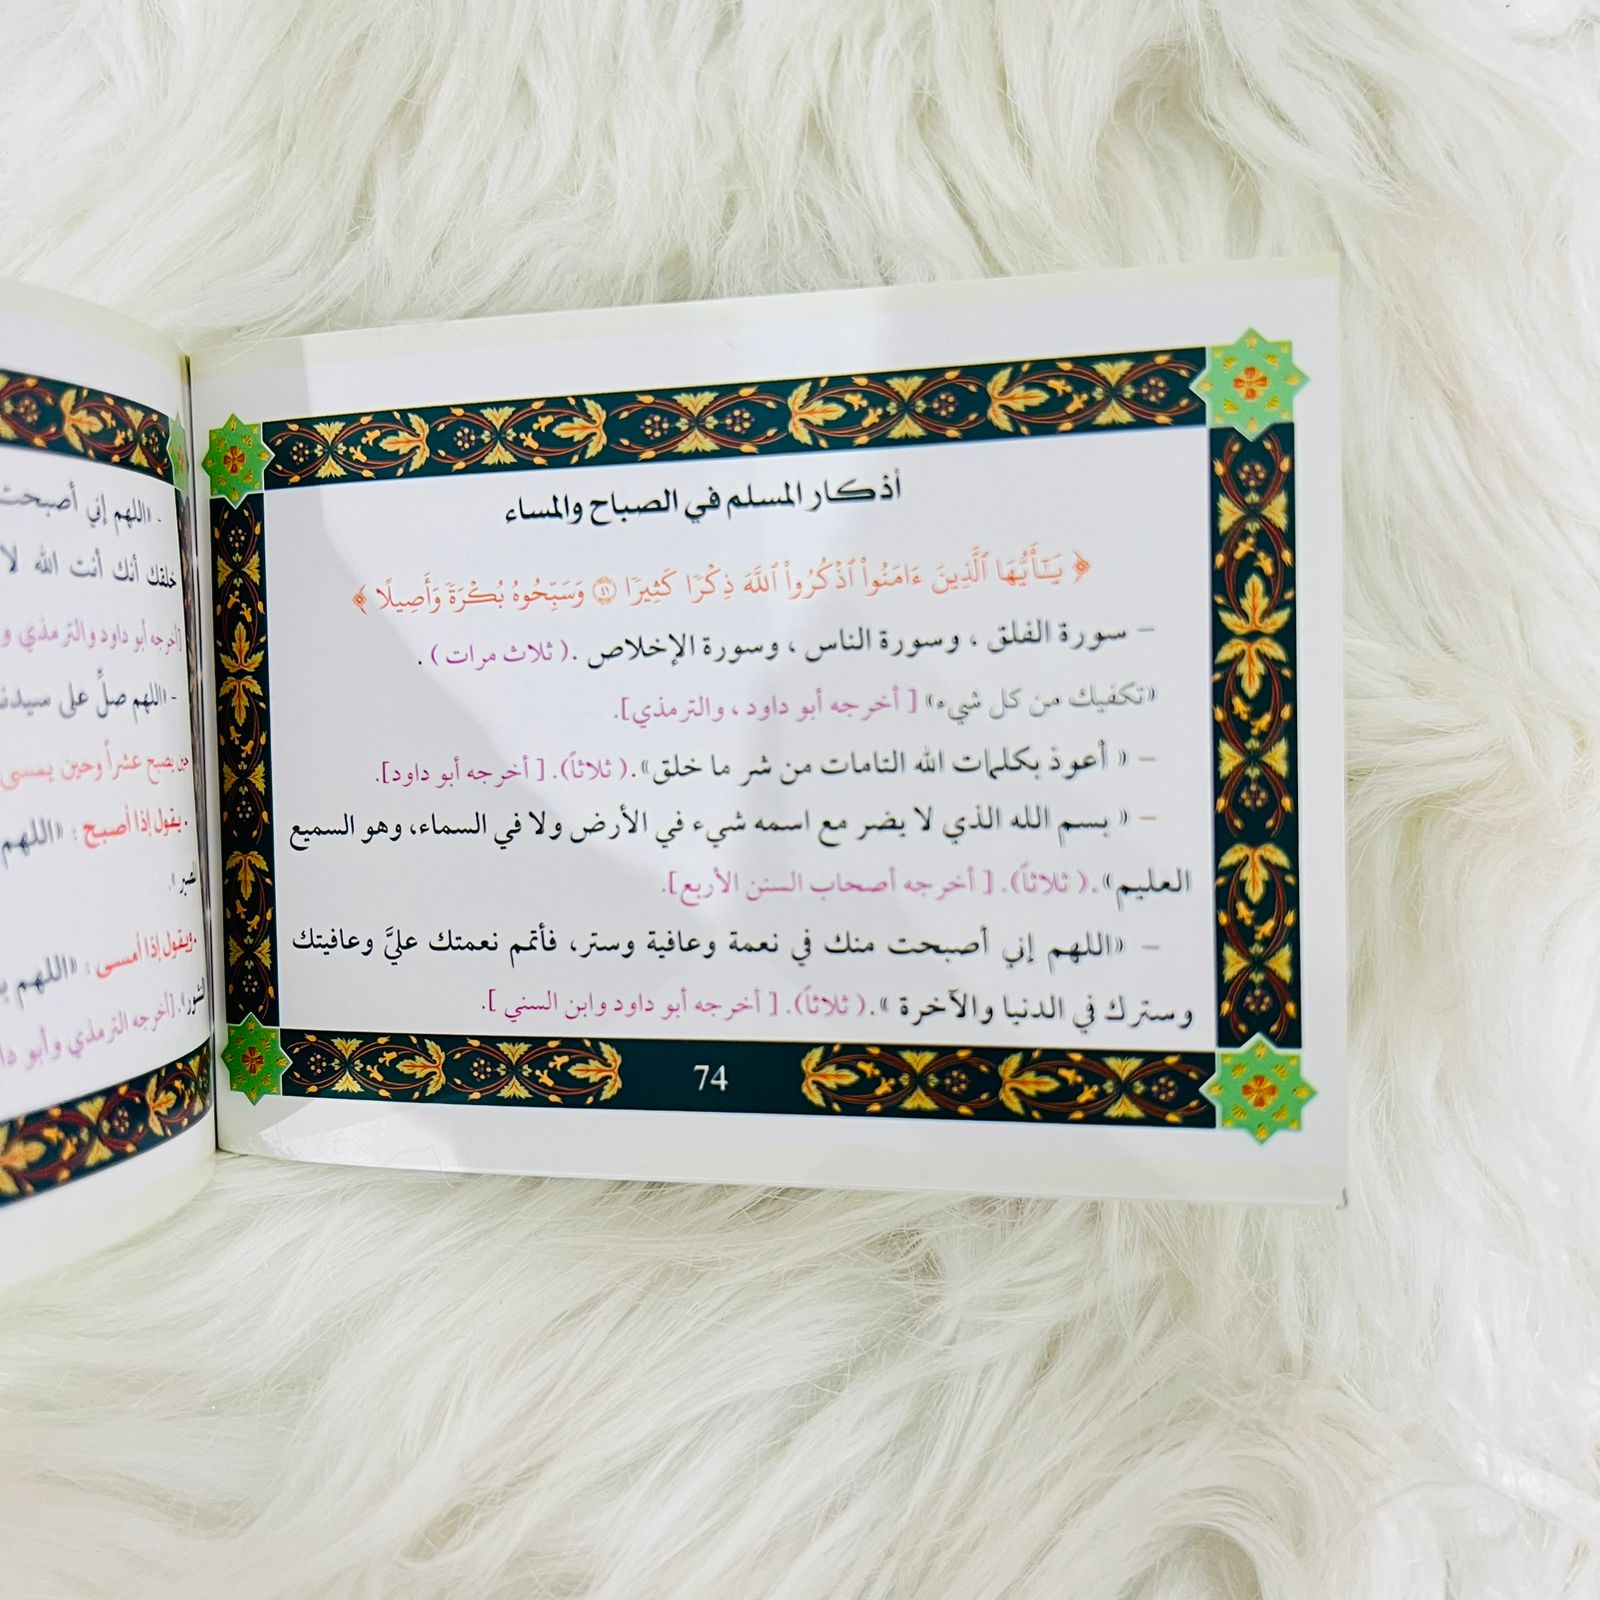 أذكار المسلم في الصباح والمساء
﴿ يَـٰٓأَيُّهَا ٱلَّذِينَ ءَامَنُواْ ٱذْكُرُواْ ٱللَّهَ ذِكْرًا كَثِيرًا ٤١ وَسَبِّحُوهُ بُكْرَةً وَأَصِيلًا ﴾
– سورة الفلق ، وسورة الناس ، وسورة الإخلاص .( ثلاث مرات ) .
«تكفيك من كل شيء» [ أخرجه أبو داود ، والترمذي].
– « أعوذ بكلمات الله التامات من شر ما خلق».( ثلاثاً). [ أخرجه أبو داود].
– « بسم الله الذي لا يضر مع اسمه شيء في الأرض ولا في السماء، وهو السميع
العليم».( ثلاثاً). [ أخرجه أصحاب السنن الأربع].
– «اللهم إني أصبحت منك في نعمة وعافية وستر، فأتمم نعمتك عليَّ وعافيتك
وسترك في الدنيا والآخرة ».( ثلاثاً). [ أخرجه أبو داود وابن السني ].
74
- «اللهم إني أصبحت
خلقك أنك أنت الله لا
[أخرجه أبو داود والترمذي و
- «اللهم صلِّ على
حين يصبح عشراً وحين يمسي
. يقول إذا أصبح : «اللهم
.ويقول إذا أمسى : «اللهم
النشور». [أخرجه الترمذي وأبو